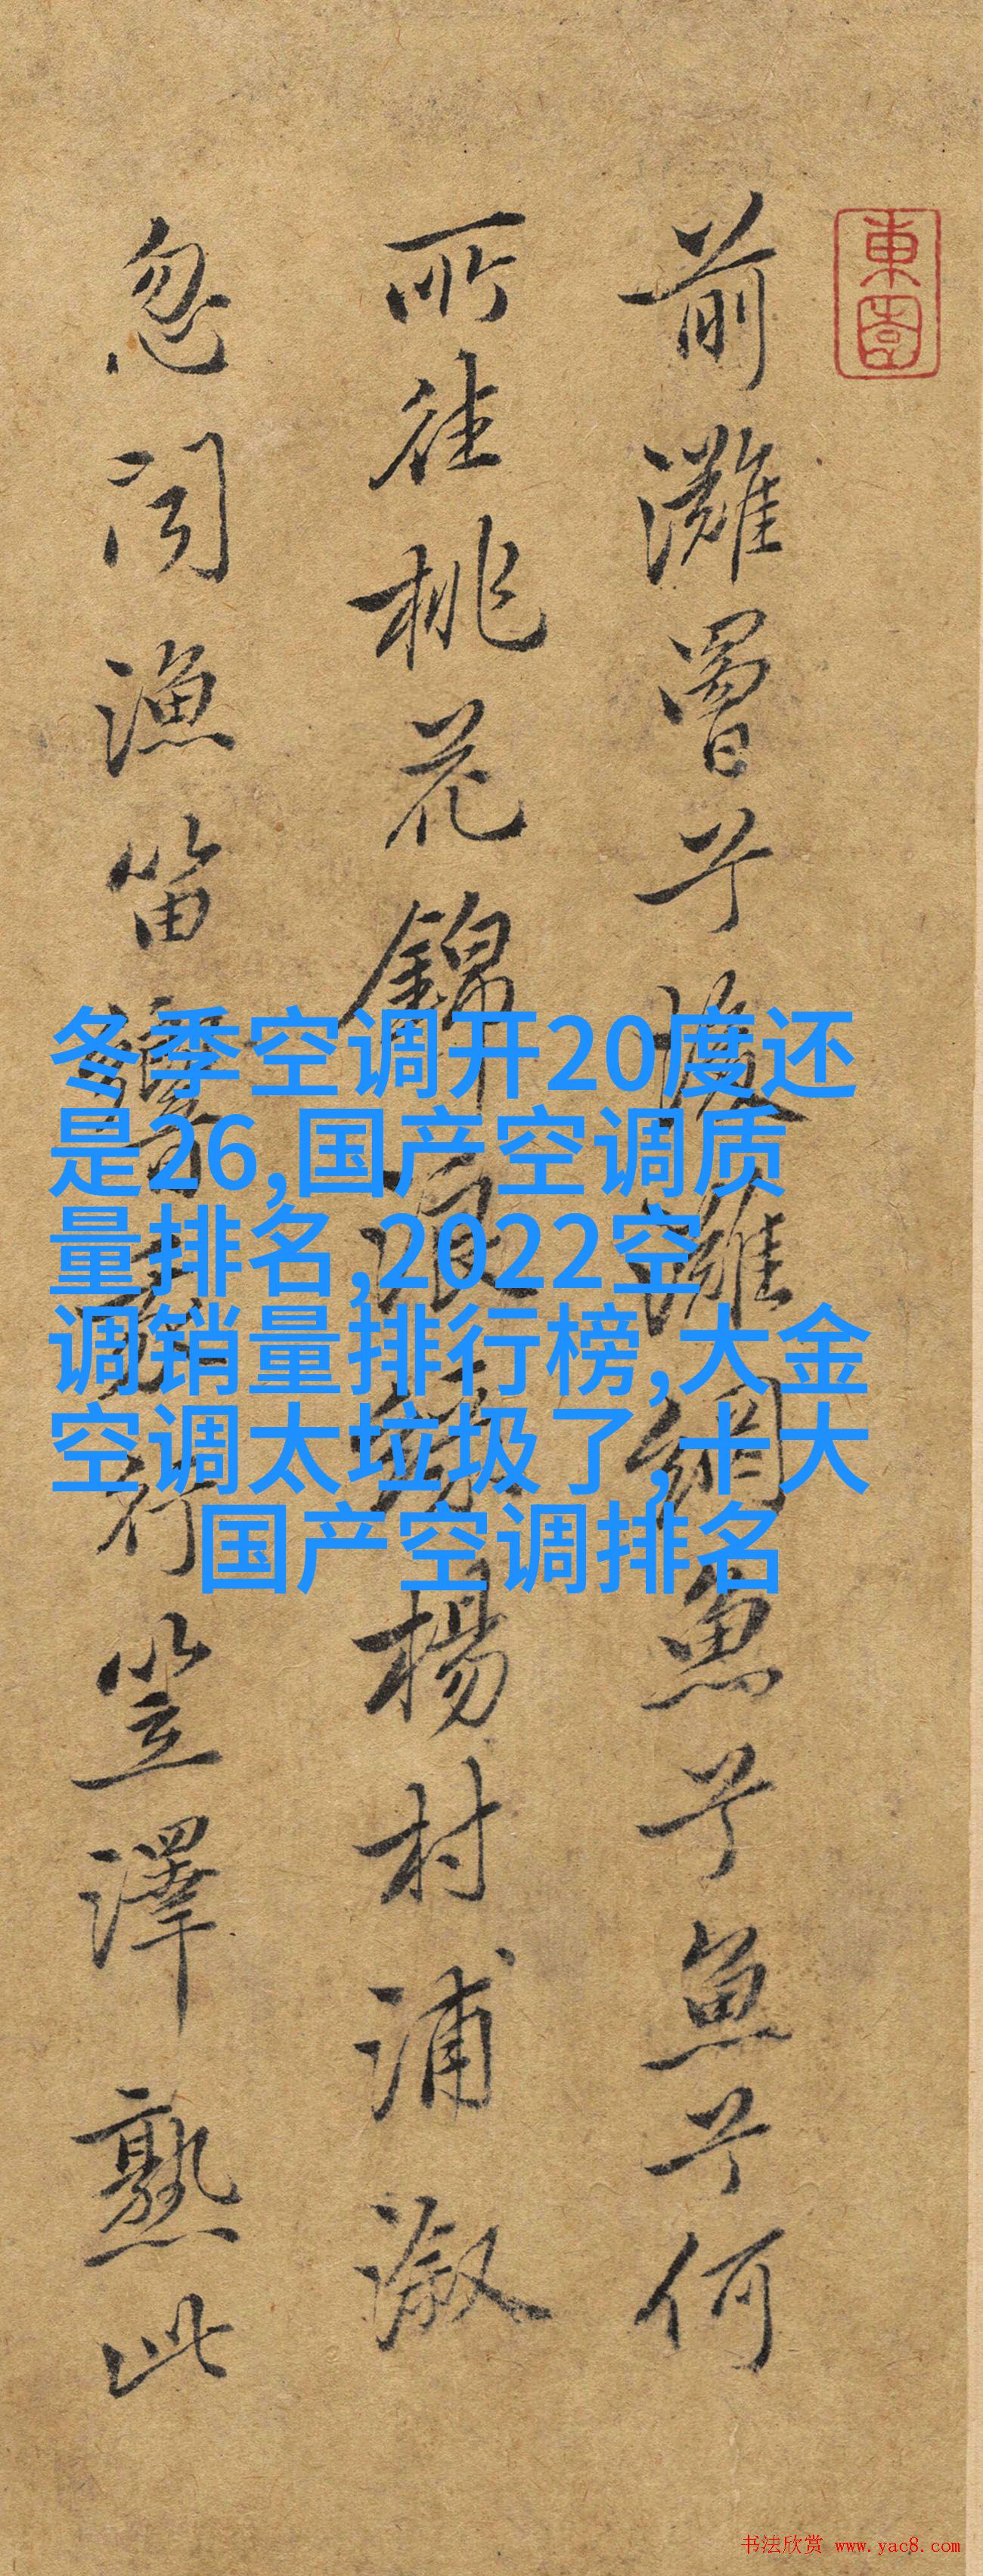 東園
前灘罾兮後灘網魚兮魚兮何
所往桃花錦浪綠楊村浦漵
忽聞漁笛響我行笠澤熟此
冬季空调开20度还
是26,国产空调质
量排名,2022空
调销量排行榜,大金
空调太垃圾了,十大
国产空调排名
书法欣赏 www.yac8.com